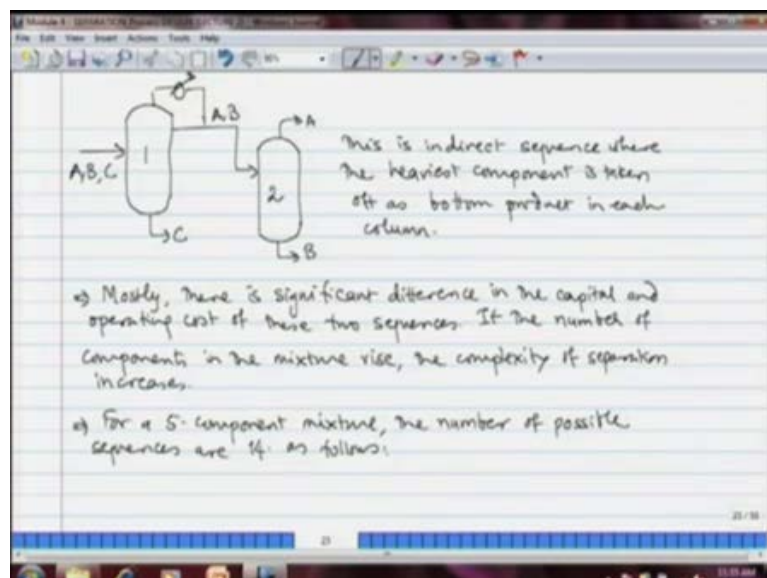 Module 4 : SEPARATION Process DESIGN (LECTURE 2) - Windows Journal
File Edit View Insert Actions Tools Help
A,B
A
A,B,C
1
2
C
B
This is indirect sequence where
the heaviest component is taken
off as bottom product in each
column.
⇒ Mostly, there is significant difference in the capital and
operating cost of these two sequences. If the number of
components in the mixture rise, the complexity of separation
increases.
⇒ For a 5-component mixture, the number of possible
sequences are 14 as follows:
23
11:15 AM